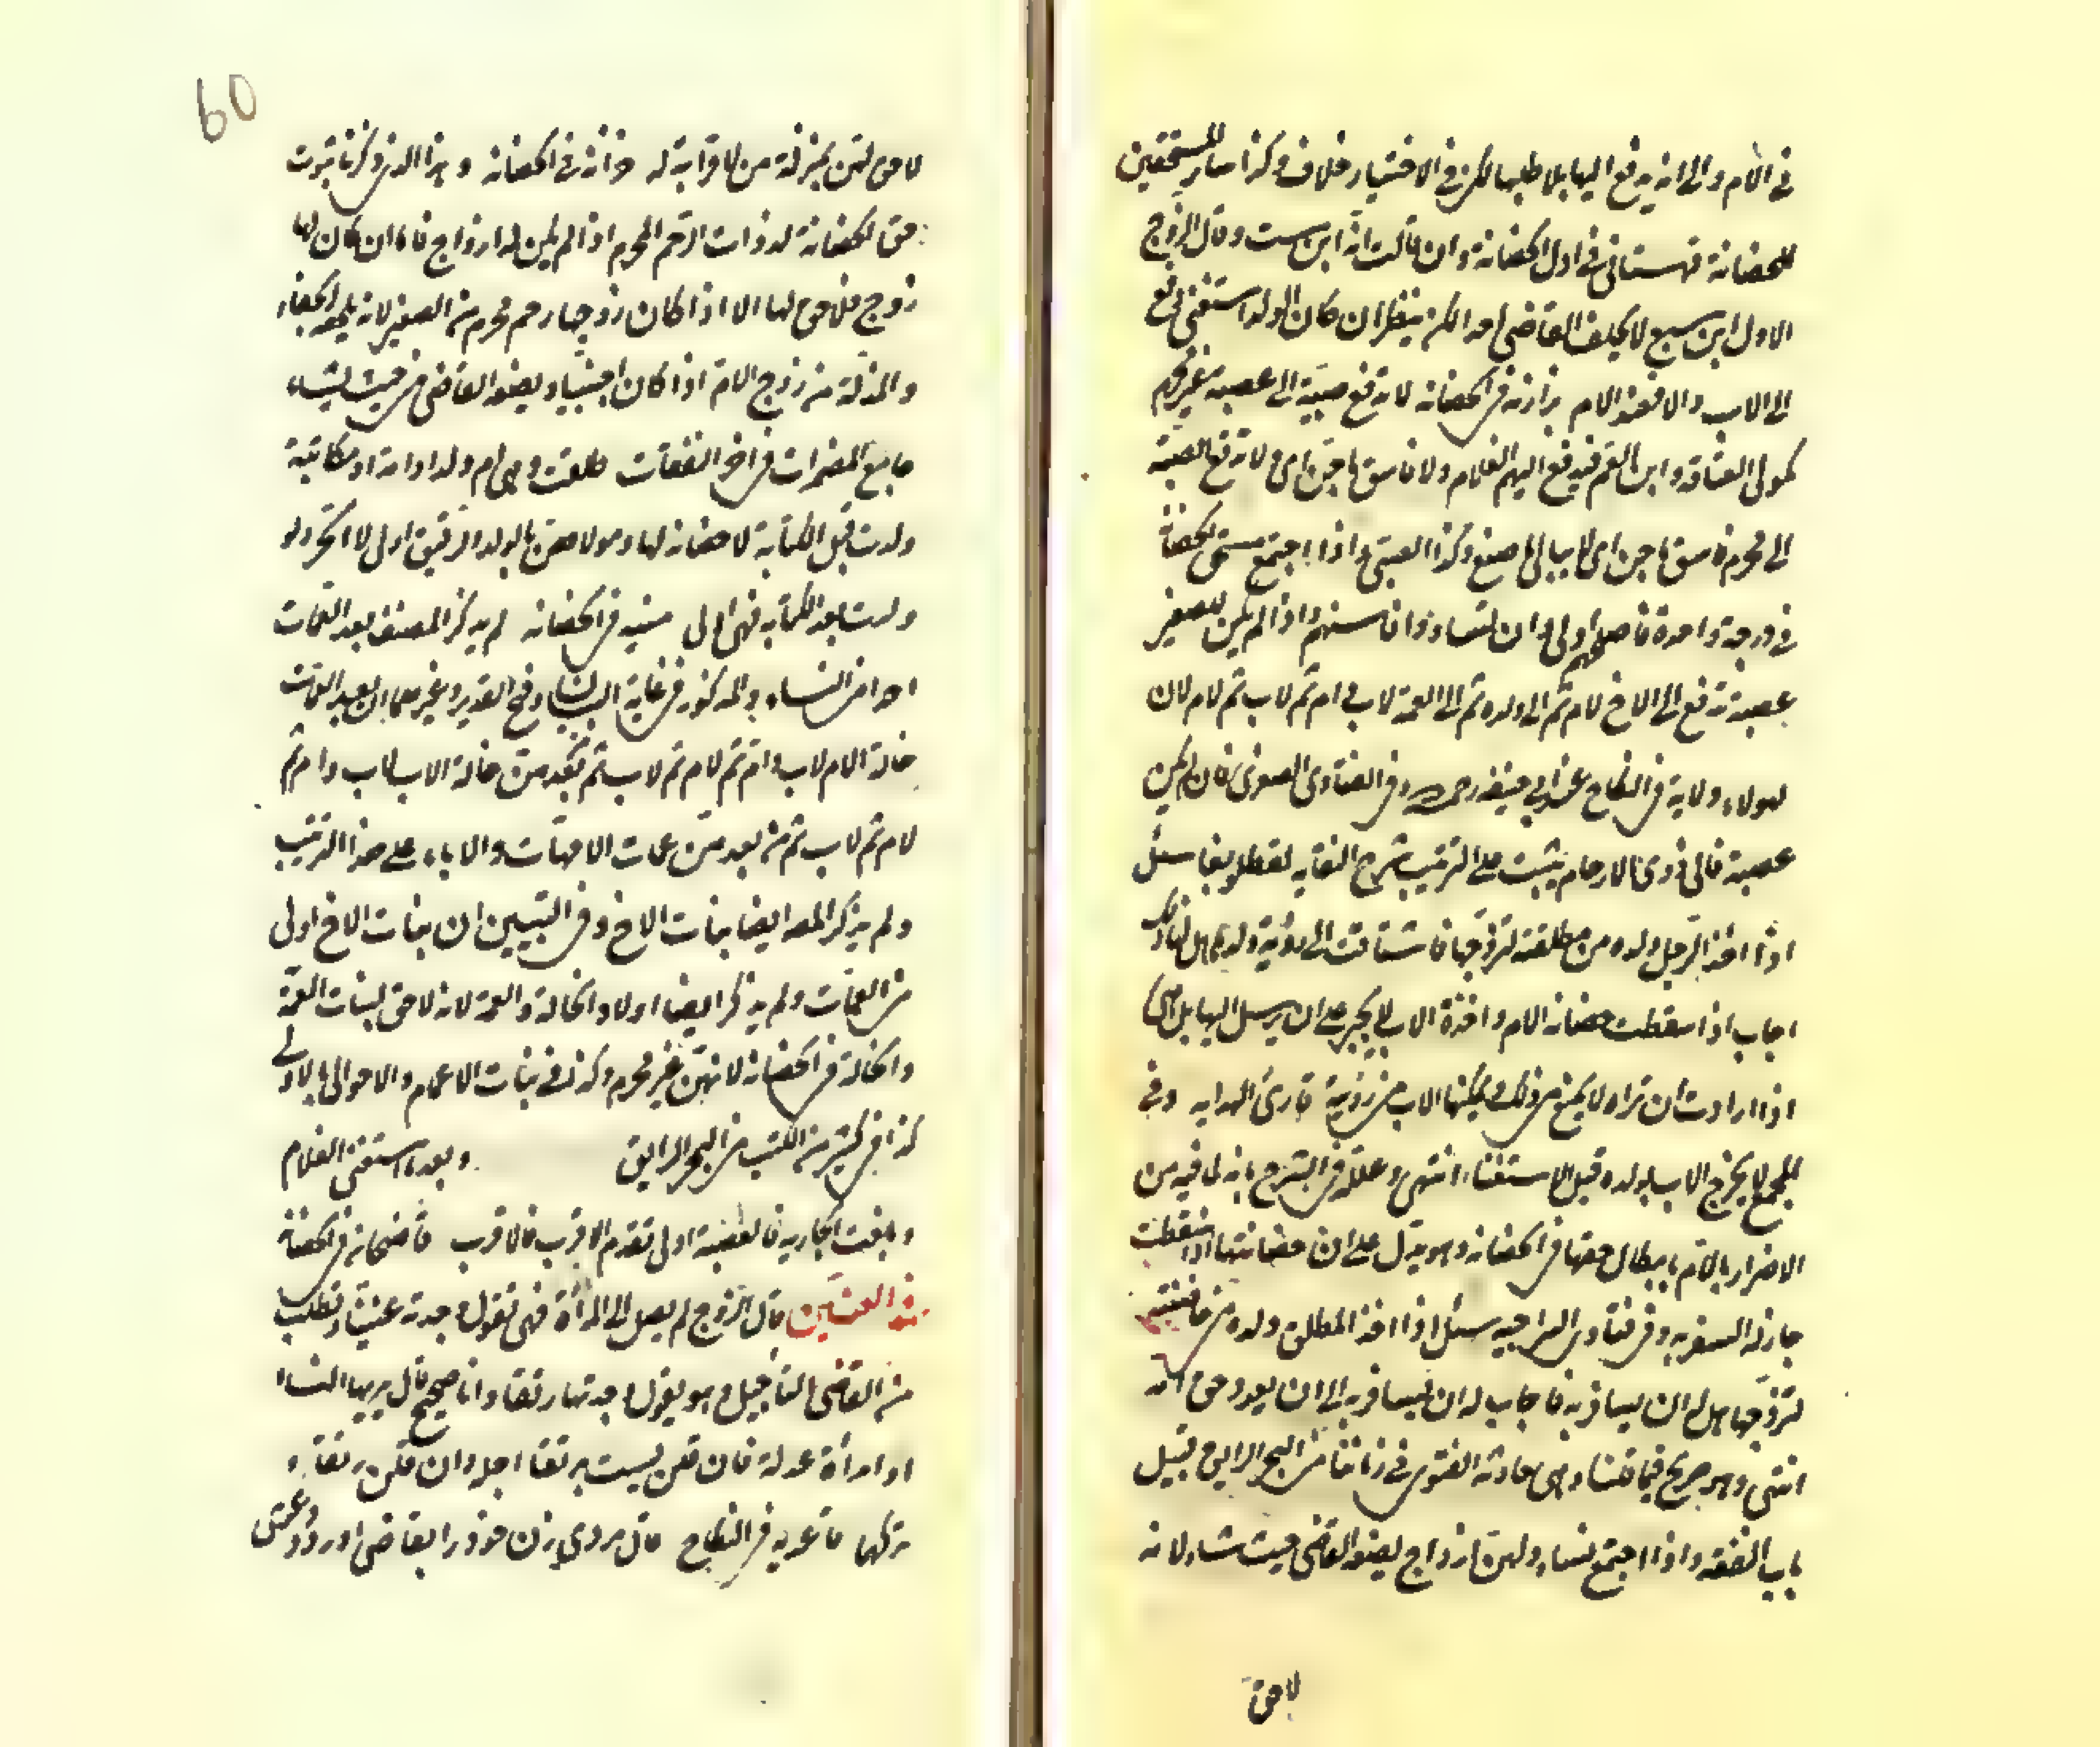 في الام والى انه يدفع اليها بلا طلبها لكن في الاختيار خلاف وكذا سائر المستحقين
للحضانة قهستاني في اول الحضانة وان قالت انه ابن ست وقال الزوج
الاول ابن سبع لا يحلف القاضي احدا لكن ينظر ان كان الولد استغنى دفع
الى الاب والا فعند الام بزازية في الحضانة لا تدفع صبية الى عصبة غير محرم
كمولى العتاقة وابن العم فيدفع اليهم الغلام ولا فاسق ماجن اي ولا تدفع الصبية
الى محرم فاسق ماجن اي لا يبالي ما صنع وكذا الصبي واذا اجتمع مستحقي الحضانة
في درجة واحدة فاصلحهم اولى وان تساووا فاسنهم واذا لم يكن للصغير
عصبة تدفع الى الاخ لام ثم الى ولده ثم الى العم لاب وام ثم لاب ثم لام لان
لهولاء ولاية في النكاح عند ابي حنيفة رحمه الله وفي الفتاوى الصغرى فان لم يكن
عصبة فالى ذوي الارحام يثبت على الترتيب شرح النقاية لقطلوبغا سئل
اذا اخذ الرجل ولده من مطلقته لتزوجها فاشتاقت الى رؤية ولدها هل لها ذلك
اجاب اذا سقطت حضانة الام واخذه الاب لا يجبر على ان يرسل اليها بل هي
اذا ارادت ان تراه لا يمنع من ذلك ويمكنها الاب من رؤيته قارئ الهداية وفي
المجمع لا يخرج الاب بولده قبل الاستغناء انتهى وعلله في الشرح بانه لما فيه من
الاضرار بالام بابطال حقها في الحضانة وهو يدل على ان حضانتها اذا سقطت
جاز له السفر به وفي فتاوى السراجية سئل اذا اخذ المطلق ولده من حاضنته
لتزوجها هل له ان يسافر به فاجاب له ان يسافر به الى ان يعود حق امه
انتهى وهو صريح فيما قلنا وهي حادثة الفتوى في زماننا من البحر الرايق قبيل
باب النفقة واذا اجتمع نساء ولهن ازواج يضعه القاضي حيث شاء لانه
لا حق
60
لا حق لهن بمنزلة من لا قرابة له خزانة في الحضانة وهذا الذي ذكرنا ثبوت
حق الحضانة لذوات الرحم المحرم اذا لم يكن لها ازواج فاما ان كان لها
زوج فلا حق لها الا اذا كان زوجها رحم محرم من الصغير لانه يلحقه الجفاء
والمذلة من زوج الام اذا كان اجنبيا ويضعه القاضي في حيث يشاء
جامع المضمرات في اخر النفقات طلقت وهي ام ولد او امة او مكاتبة
ولدت قبل الكتابة لا حضانة لها ومولاهن بالولد الرقيق اولى لا الحر ولو
ولدت بعد الكتابة فهي اولى منية في الحضانة لم يذكر المصنف بعد العمات
احدا من النساء والمذكور في غاية البيان وفتح القدير وغيرهما ان بعد العمات
خالة الام لاب وام ثم لام ثم لاب ثم بعدهن خالة الاب لاب وام ثم
لام ثم لاب ثم من بعدهن عمات الامهات والاباء على هذا الترتيب
ولم يذكر المصـ ايضا بنات الاخ وفي التبيين ان بنات الاخ اولى
من العمات ولم يذكر ايضا اولاد الخالة والعمة لانه لا حق لبنات العمة
والخالة في الحضانة لانهن غير محرم وكذلك في بنات الاعمام والاخوال بالاولى
كذا في كثير من الكتب من البحر الرايق وبعد ما استغنى الغلام
وبلغت الجارية فالعصبة اولى تقدم الاقرب فالاقرب قاضيخان في الحضانة
في العنين قال الزوج لم يصل الى المرأة فهي تقول وجدته عنينا وتطلب
من القاضي التأجيل وهو يقول وجدتها رتقا وانا صحيح قال يريها النساء
او امرأة عدلة فان قلن ليست برتقا اجله وان قلن رتقاء
تركها قاعدية في النكاح قال مردي زن خود را بقاضي اورد